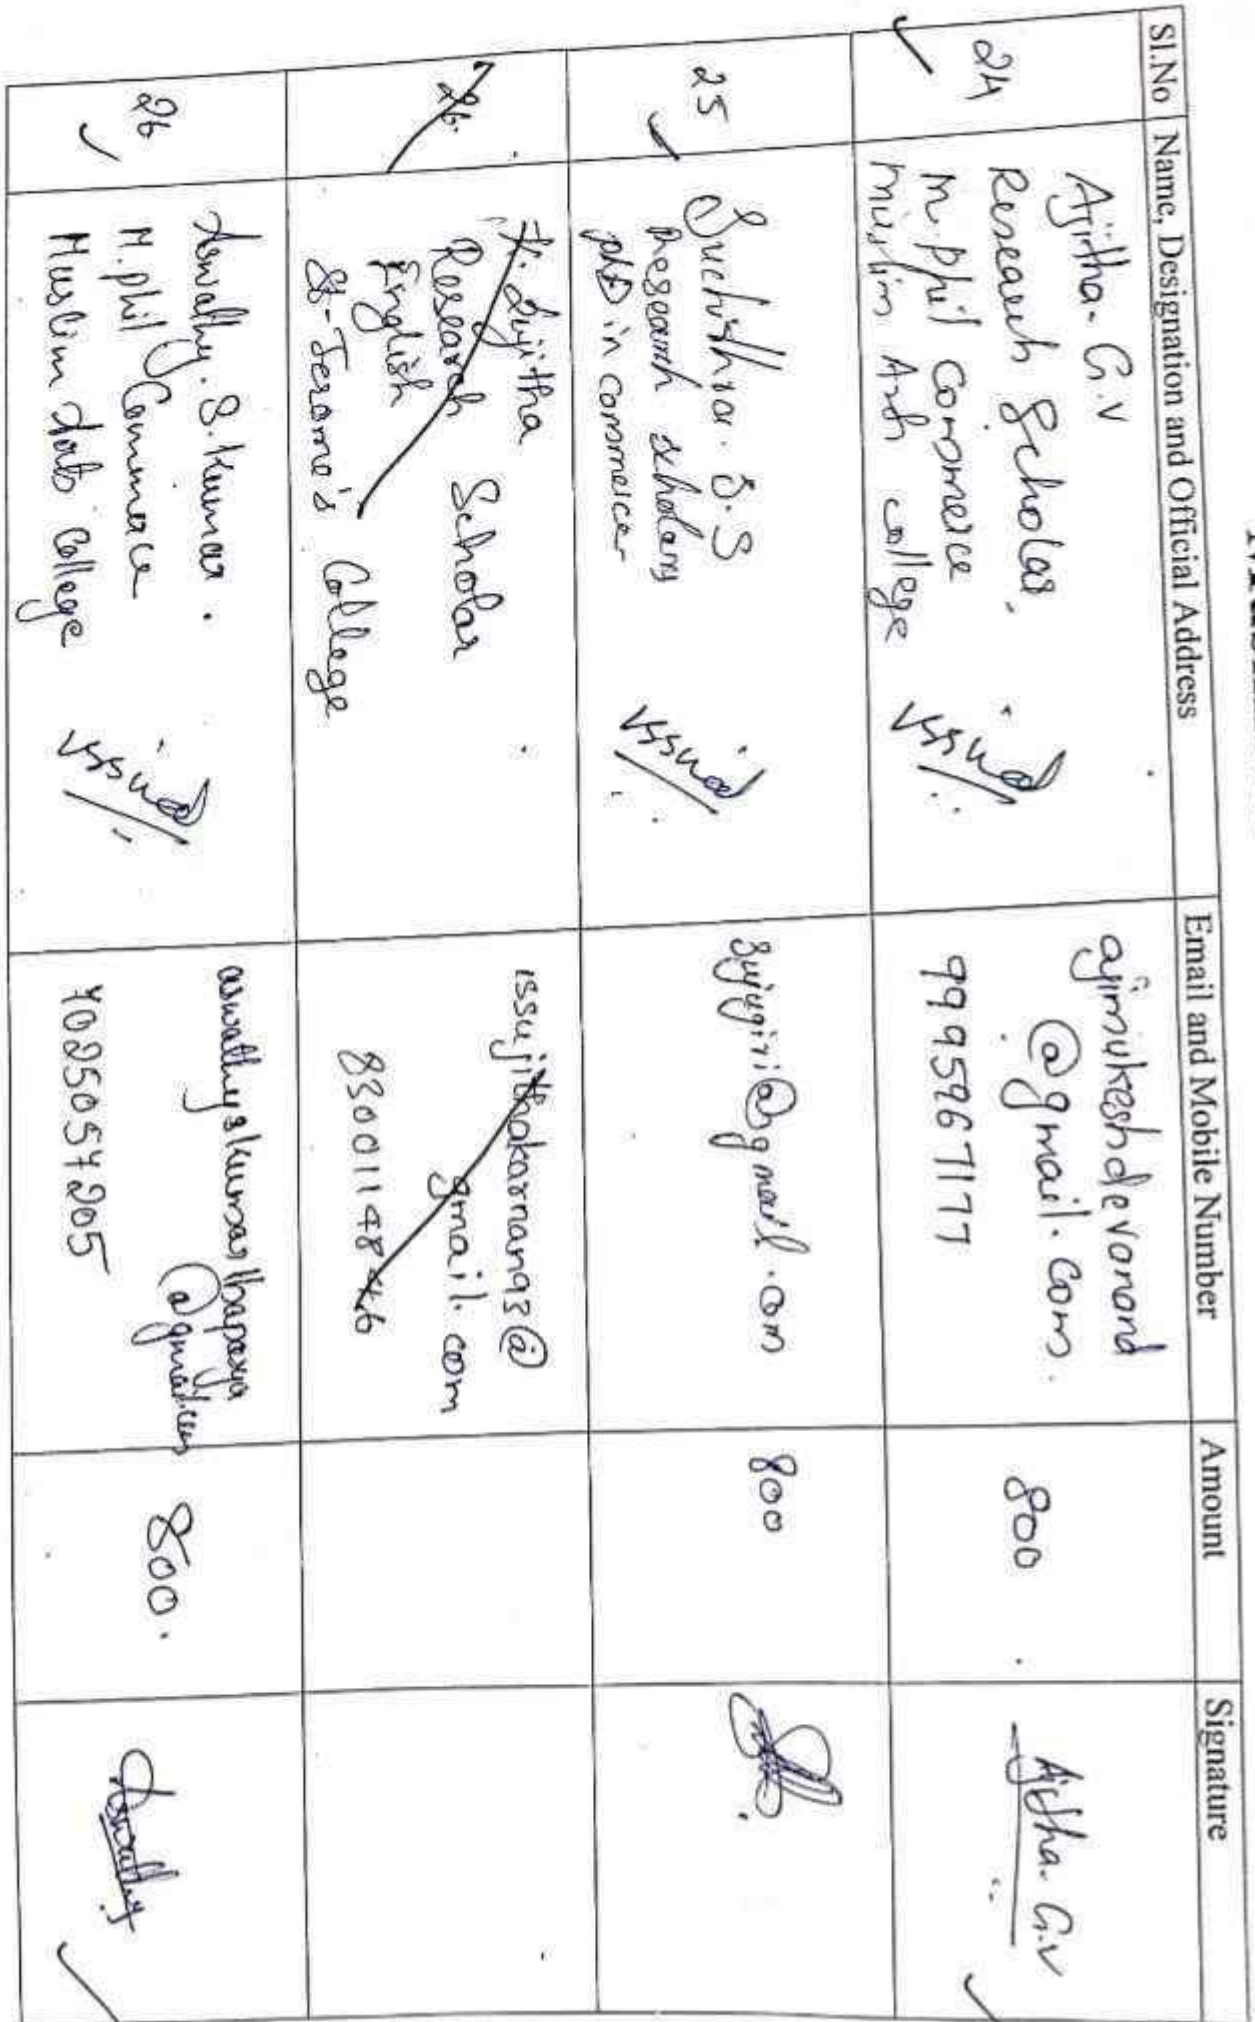 Sl.No Name, Designation and Official Address Email and Mobile Number Amount Signature
24
Ajitha. G.V
Research Scholar
M.phil Commerce
Muslim Arts college
issued
ajimukeshdevanand
@gmail.com.
9995967177
800
Ajitha. G.V
25
Suchithra. S.S
Research scholar
phD in commerce
issued
sujugiri@gmail.com
800
26.
Sujitha
Research Scholar
English
St. Jerome's College
issujithakarnan93@
gmail.com
26
Aswathy. S. Kumar.
M.phil Commerce
Muslim Arts College
issued
@gmail.com
7025057205
800.
Aswathy